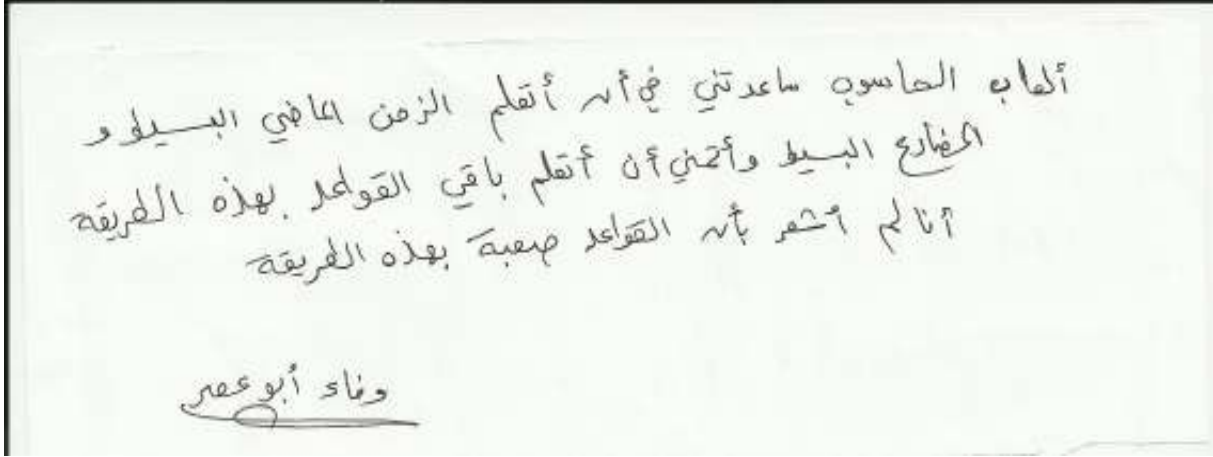 ألعاب الحاسوب ساعدتني في أن أتعلم الزمن الماضي البسيط و
المضارع البسيط وأتمنى أن أتعلم باقي القواعد بهذه الطريقة
أنا لم أشعر بأن القواعد صعبة بهذه الطريقة
وفاء أبو عصر